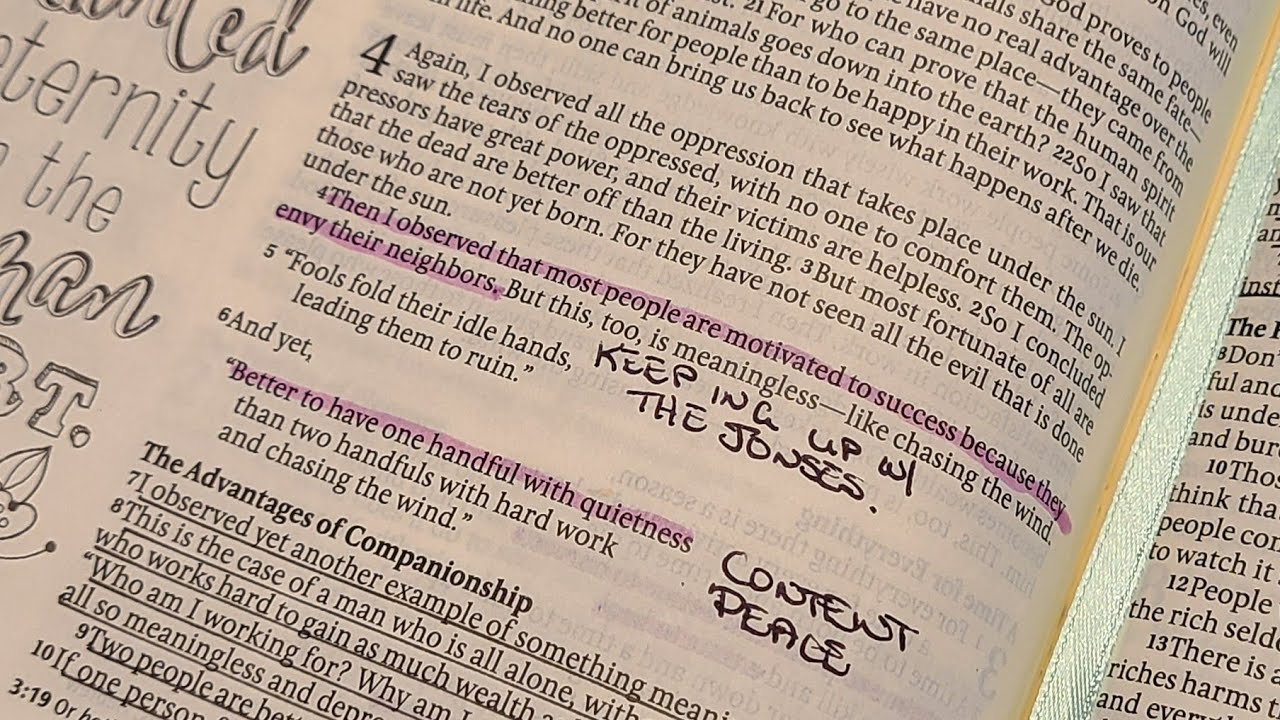 eternity
the
have no real advantage over the
God proves to people
go to the same place—they came from
st. 21 For who can prove that the human spirit
of animals goes down into the earth? 22 So I saw that
ning better for people than to be happy in their work. That is our
in life. And no one can bring us back to see what happens after we die.
4 Again, I observed all the oppression that takes place under the sun. I
saw the tears of the oppressed, with no one to comfort them. The op-
pressors have great power, and their victims are helpless. 2 So I concluded
that the dead are better off than the living. 3 But most fortunate of all are
those who are not yet born. For they have not seen all the evil that is done
under the sun.
4 Then I observed that most people are motivated to success because they
envy their neighbors. But this, too, is meaningless—like chasing the wind.
5 “Fools fold their idle hands,
leading them to ruin.”
KEEPING UP W/
THE JONSES.
6 And yet,
“Better to have one handful with quietness
than two handfuls with hard work
and chasing the wind.”
CONTENT
PEACE
The Advantages of Companionship
7 I observed yet another example of something meani
8 This is the case of a man who is all alone, with
who works hard to gain as much wealth
“Who am I working for? Why am I
all so meaningless and depre
9 Two people are bett
10 If one person
3:19 Or
inst
The
8 Don
ful and
is unde
and bur
10 Thos
think tha
people con
to watch it
12 People
the rich seld
13 There is a
riches harms t
and everyt